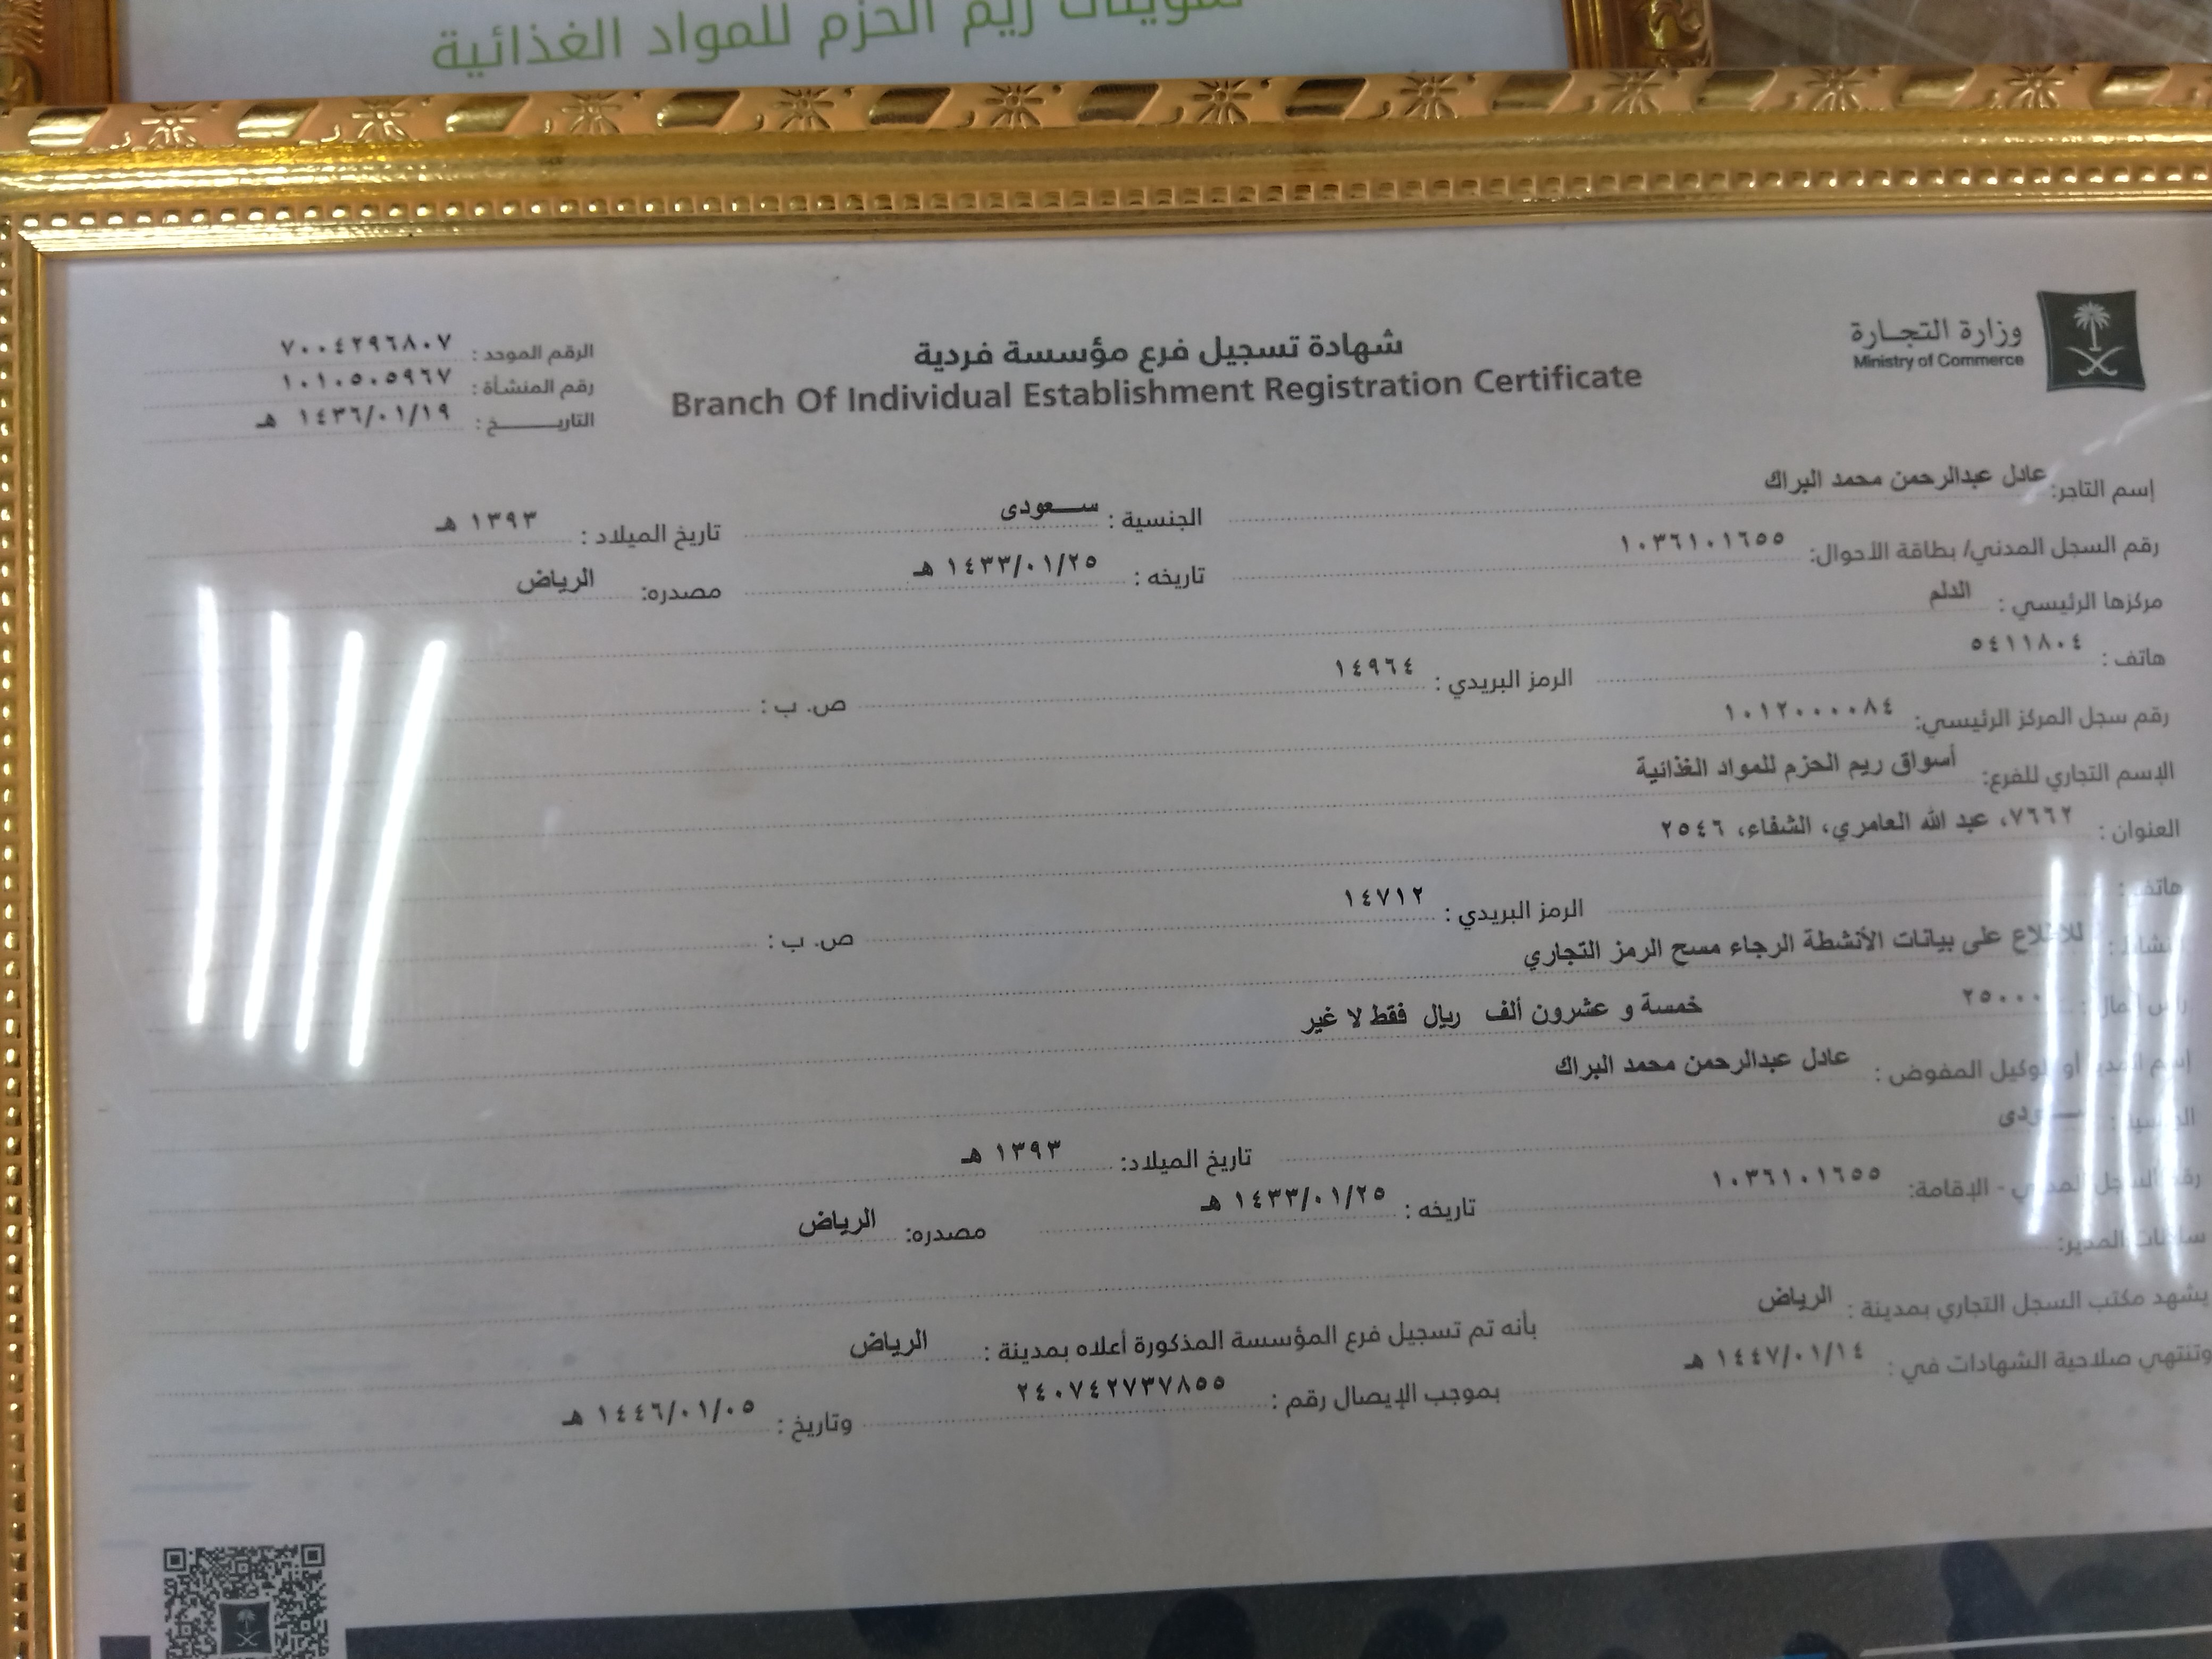 تموينات ريم الحزم للمواد الغذائية
وزارة التجـارة
Ministry of Commerce
شهادة تسجيل فرع مؤسسة فردية
Branch Of Individual Establishment Registration Certificate
الرقم الموحد : ٧٠٠٤٢٩٦٨٠٧
رقم المنشأة : ١٠١٠٥٠٥٩٦٧
التاريـــــــخ : ١٤٣٦/٠١/١٩ هـ
إسم التاجر: عادل عبدالرحمن محمد البراك الجنسية : ســـعودى تاريخ الميلاد : ١٣٩٣ هـ
رقم السجل المدني/ بطاقة الأحوال: ١٠٣٦١٠١٦٥٥ تاريخه : ١٤٣٣/٠١/٢٥ هـ مصدره: الرياض
مركزها الرئيسي : الدلم
هاتف : ٥٤١١٨٠٤ الرمز البريدي : ١٤٩٦٤ ص. ب :
رقم سجل المركز الرئيسي: ١٠١٢٠٠٠٠٨٤
الإسم التجاري للفرع: أسواق ريم الحزم للمواد الغذائية
العنوان : ٧٦٦٢، عبد الله العامري، الشفاء، ٢٥٤٦
هاتف : الرمز البريدي : ١٤٧١٢ ص. ب :
للاطلاع على بيانات الأنشطة الرجاء مسح الرمز التجاري
رأس المال : ٢٥٠٠٠ خمسة و عشرون ألف ريال فقط لا غير
إسم المدير أو الوكيل المفوض : عادل عبدالرحمن محمد البراك
الجنسية : ســـعودى تاريخ الميلاد: ١٣٩٣ هـ
رقم السجل المدني - الإقامة: ١٠٣٦١٠١٦٥٥ تاريخه : ١٤٣٣/٠١/٢٥ هـ مصدره: الرياض
المدير:
يشهد مكتب السجل التجاري بمدينة : الرياض بأنه تم تسجيل فرع المؤسسة المذكورة أعلاه بمدينة : الرياض
وتنتهي صلاحية الشهادات في : ١٤٤٧/٠١/١٤ هـ بموجب الإيصال رقم : ٢٤٠٧٤٢٧٣٧٨٥٥ وتاريخ : ١٤٤٦/٠١/٠٥ هـ